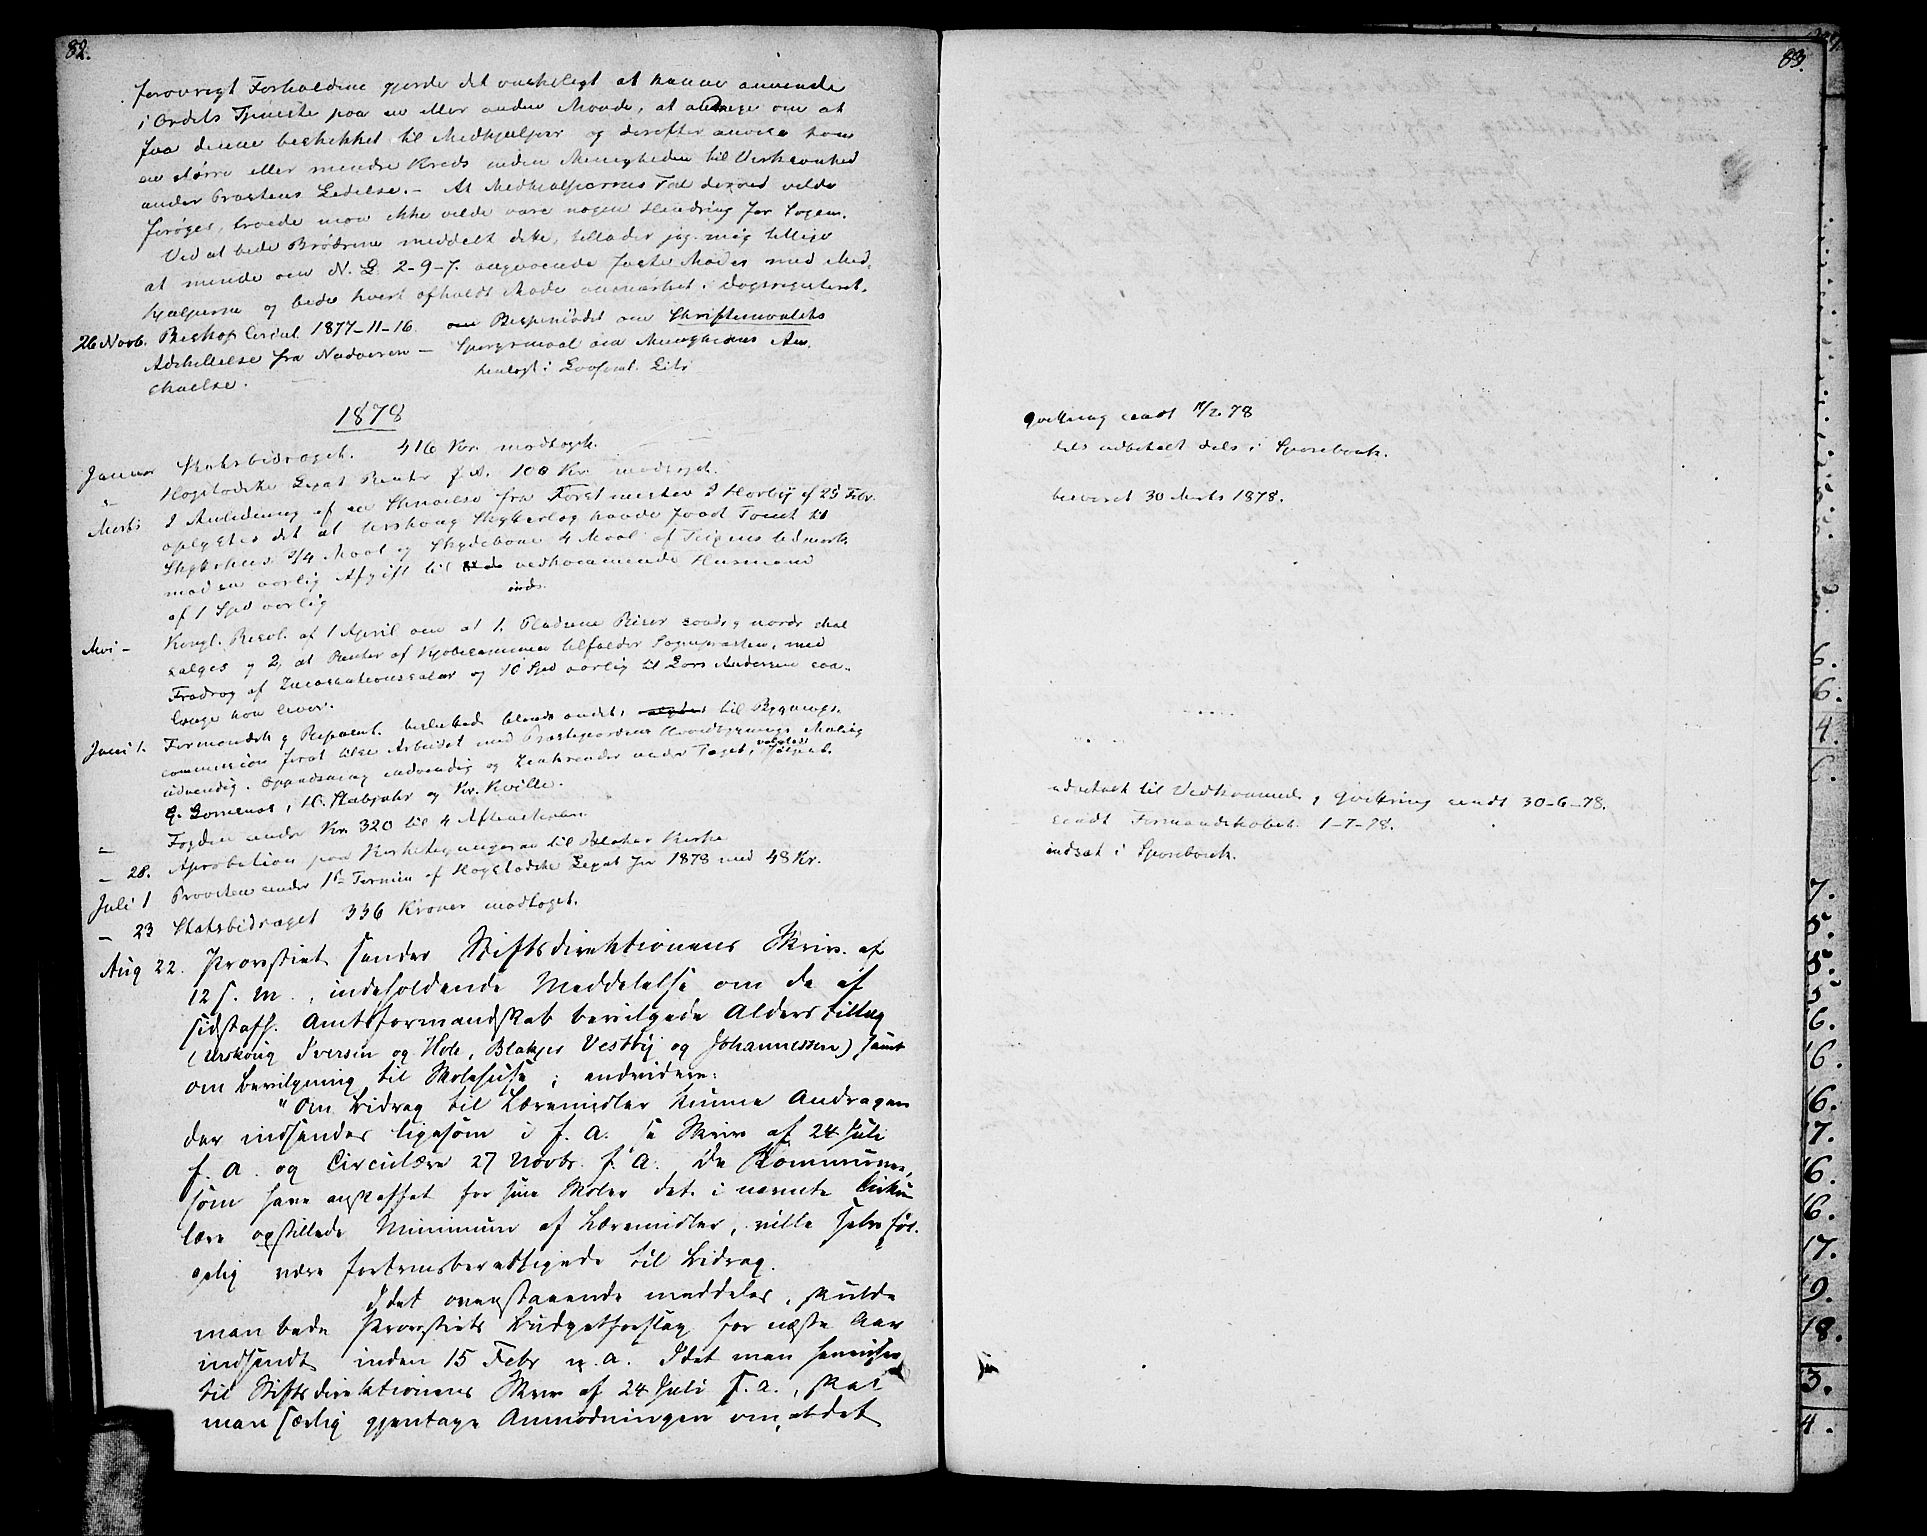 82.
forøvrigt Forholdene gjorde det ønskeligt at kunne anvende
i Ordets Tjeneste paa en eller anden Maade, at andrage om at
faa denne beskikket til Medhjælper og derefter anvise ham
en større eller mindre Kreds inden Menigheden til Virksomhed
under Præstens Ledelse. – At Medhjælpernes Tal derved vilde
forøges, troede man ikke vilde være nogen Hindring for Sagen.
Ved at bede Brødrene meddelt dette, tillader jeg mig tillige
at minde om N. L. 2-9-7. angaaende faste Møder med Med-
hjælperne og bede hvert afholdt Møde anmærket i Dagsregisteret.
26 Novb. Biskop Circul. 1877-11-16. om Bispemødet om Skriftemaalets
Adskillelse fra Nadveren – Spørgsmaal om Menighedens An-
skuelse. henlagt i
1878
Januar Statsbidraget. 416 Kr. modtaget.
" Hogstadske Legat Renter f. A. 100 Kr. modtaget.
Marts I Anledning af en Skrivelse fra Forstmester I Hørbye af 25 Febr.
oplystes det at Urskoug Skytterlag havde faaet Tomt til
Skytterhus 3/4 Maal og Skydebane 4 Maal af Udmark
mod en aarlig Afgift til vedkommende Husmand
af 1 Spd aarlig
Mai – Kongl. Resol. af 1 April om at 1, Pladsene Riser søndre g nordre skal
sælges g 2, at Renter af Kjøbesummen tilfalder Sognepræsten, med
Fradrag af Incassationssalær og 10 Spd aarlig til Lars Andersen saa-
længe han lever.
Juni 1. Formandsk. g Repræsent. besluttede blandt andet, til Bygnings-
commission forat lede Arbeidet med Præstegaardens Hovedbygnings Maling
udvendig. Opudsning indvendig og Zinkrender under Taget, valgtes
G. i, H. Stabæk og Kr. Kville.
– Fogden sender Kr. 320 til 4
– 28. Aprobation paa til Blaker Kirke
Juli 1 Provsten sender 1ste Termin af Hogstadske Legat for 1878 med 48 Kr.
– 23 Statsbidraget 336 Kroner modtaget.
Aug 22. Provstiet sender Stiftsdirektionens Skriv. af
12 d. M., indeholdende Meddelelse om de af
sidstafh. Amtsformandskab bevilgede Alderstillæg
(Urskoug Iversen og Hole, Blakjer Vestby og Johannessen) samt
om Bevilgning til Skolehuse; endvidere:
"Om Bidrag til Læremidler kunne Andragen
der indsendes ligesom i f. A. se Skriv af 24 Juli
f. A. og Circulære 27 Novbr. f. A. De Kommuner,
som have anskaffet for sine Skoler det i nævnte Cirku
lære opstillede Minimum af Læremidler, ville selvføl-
gelig være fortrinsberettigede til Bidrag.
Idet ovenstaaende meddeles, skulde
man bede Provstiets Budgetforslag for næste Aar
indsendt inden 15 Febr n. a. Idet man henviser
til Stiftsdirektionens Skriv af 24 Juli f. a., skal
man særlig gjentage Anmodningen om, at det
83.
Qvittering sendt 11/2 78
dels udbetalt dels i Sparebank.
besvaret 30 Marts 1878.
udbetalt til Vedkommende, g qvittring sendt 30-6-78.
sendt Formandskabet 1-7-78.
indsat i Sparebank.
6.
6.
4.
6.
7.
8.
8.
5.
6.
6.
6.
7.
6.
6.
17.
9.
18.
3.
4.